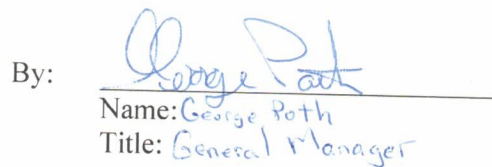 By: George Poth
Name: George Poth
Title: General Manager